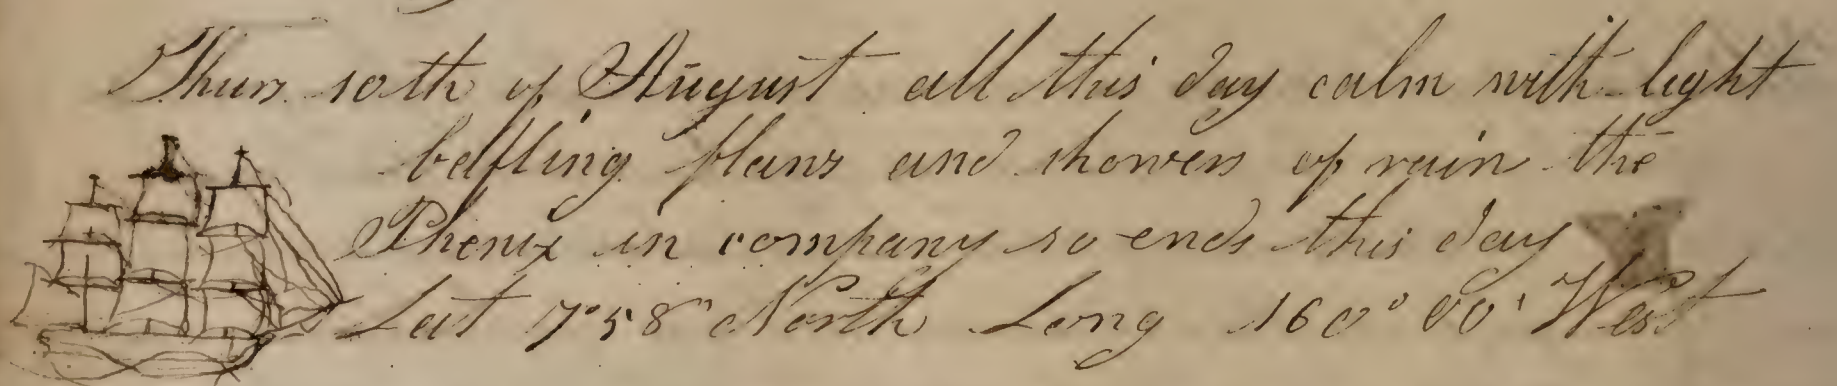 Thurs 10th of August all this day calm with light
bafling flaws and showers of rain the
Phenix in company so ends this day
Lat 7°58" North Long 160° 00' West